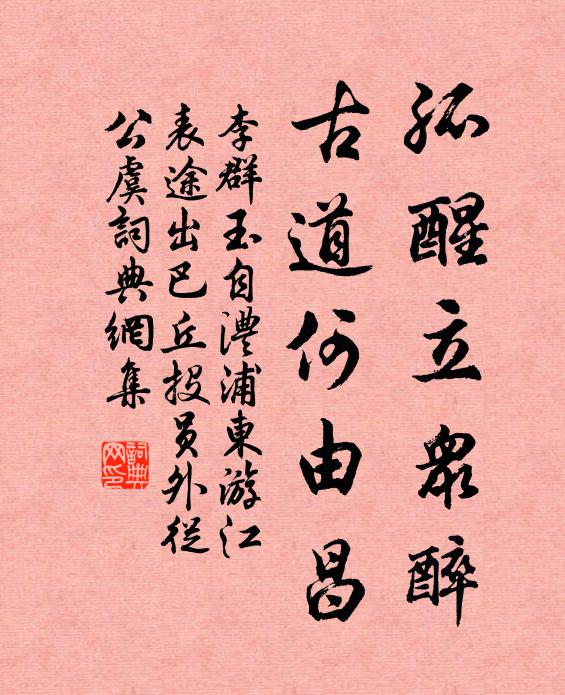 孤醒立衆醉
古道何由昌
李群玉自澧浦東游江
表途出巴丘投員外從
公虞詞典網集
詞典網印